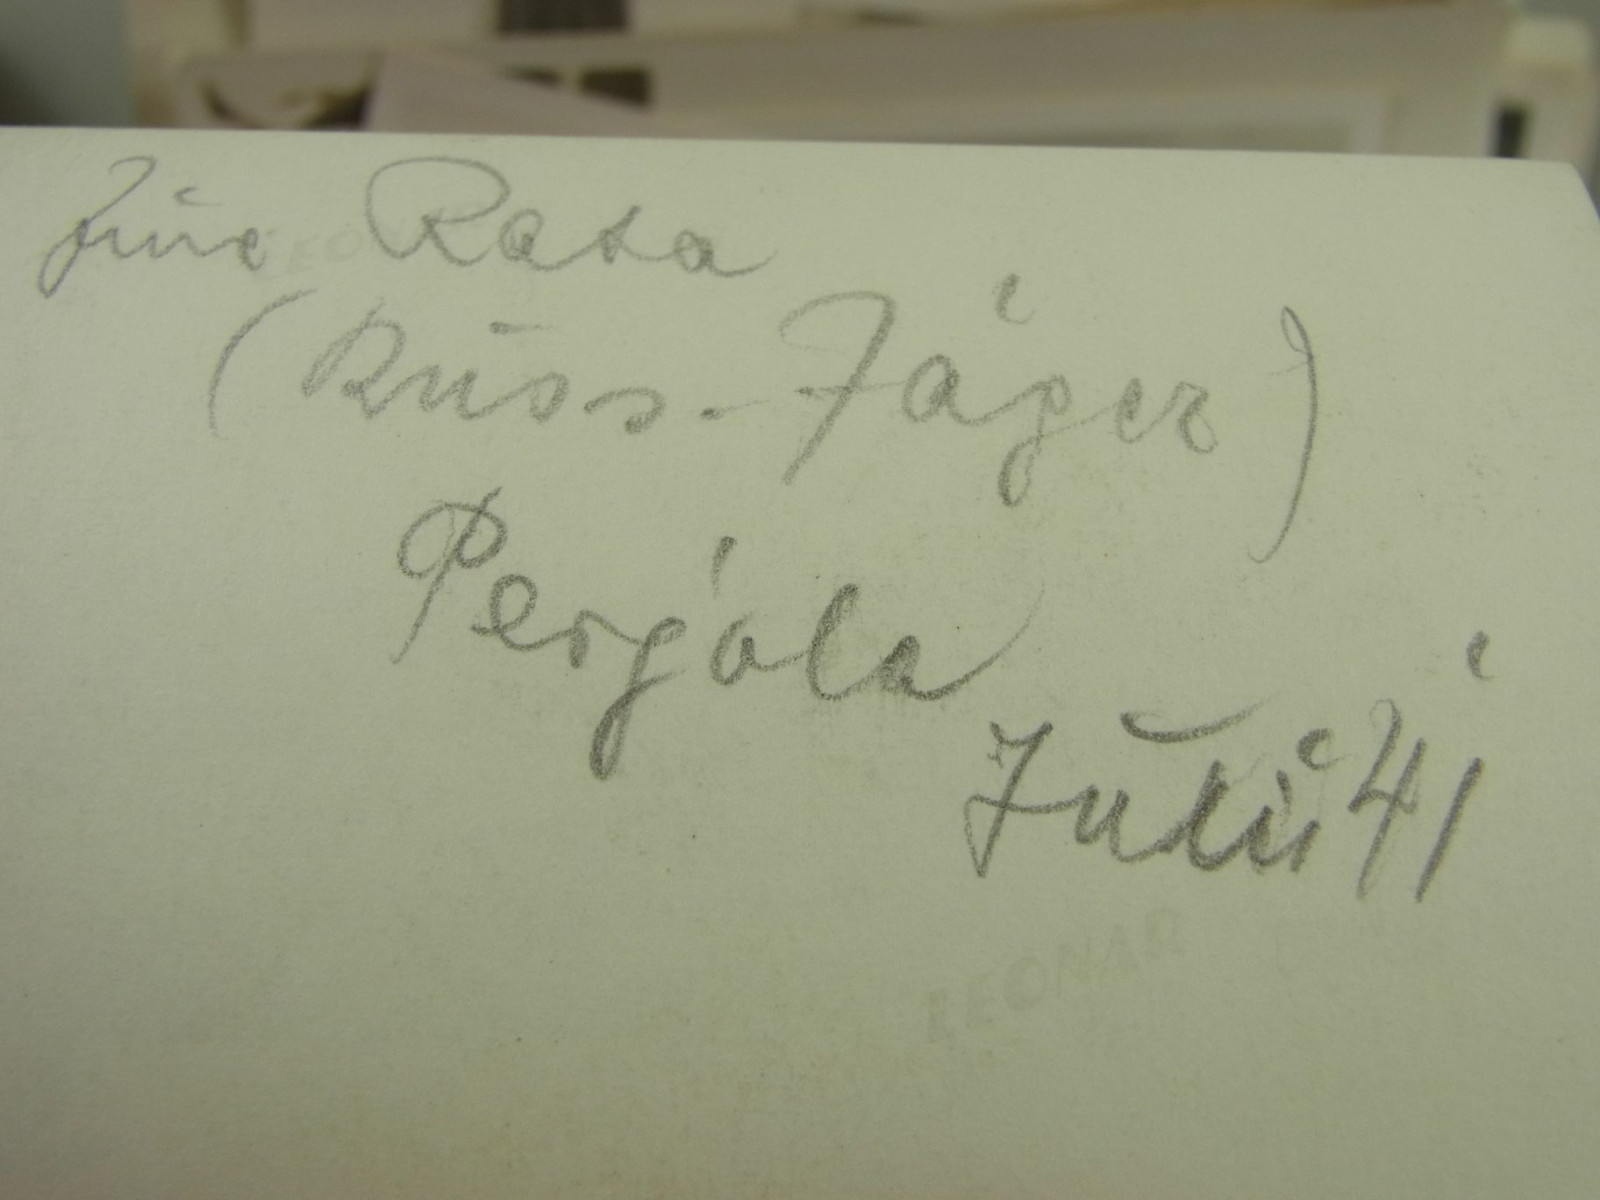 Eine Rata
(Russ. Jäger)
Pergola
Juli 41
LEONAR